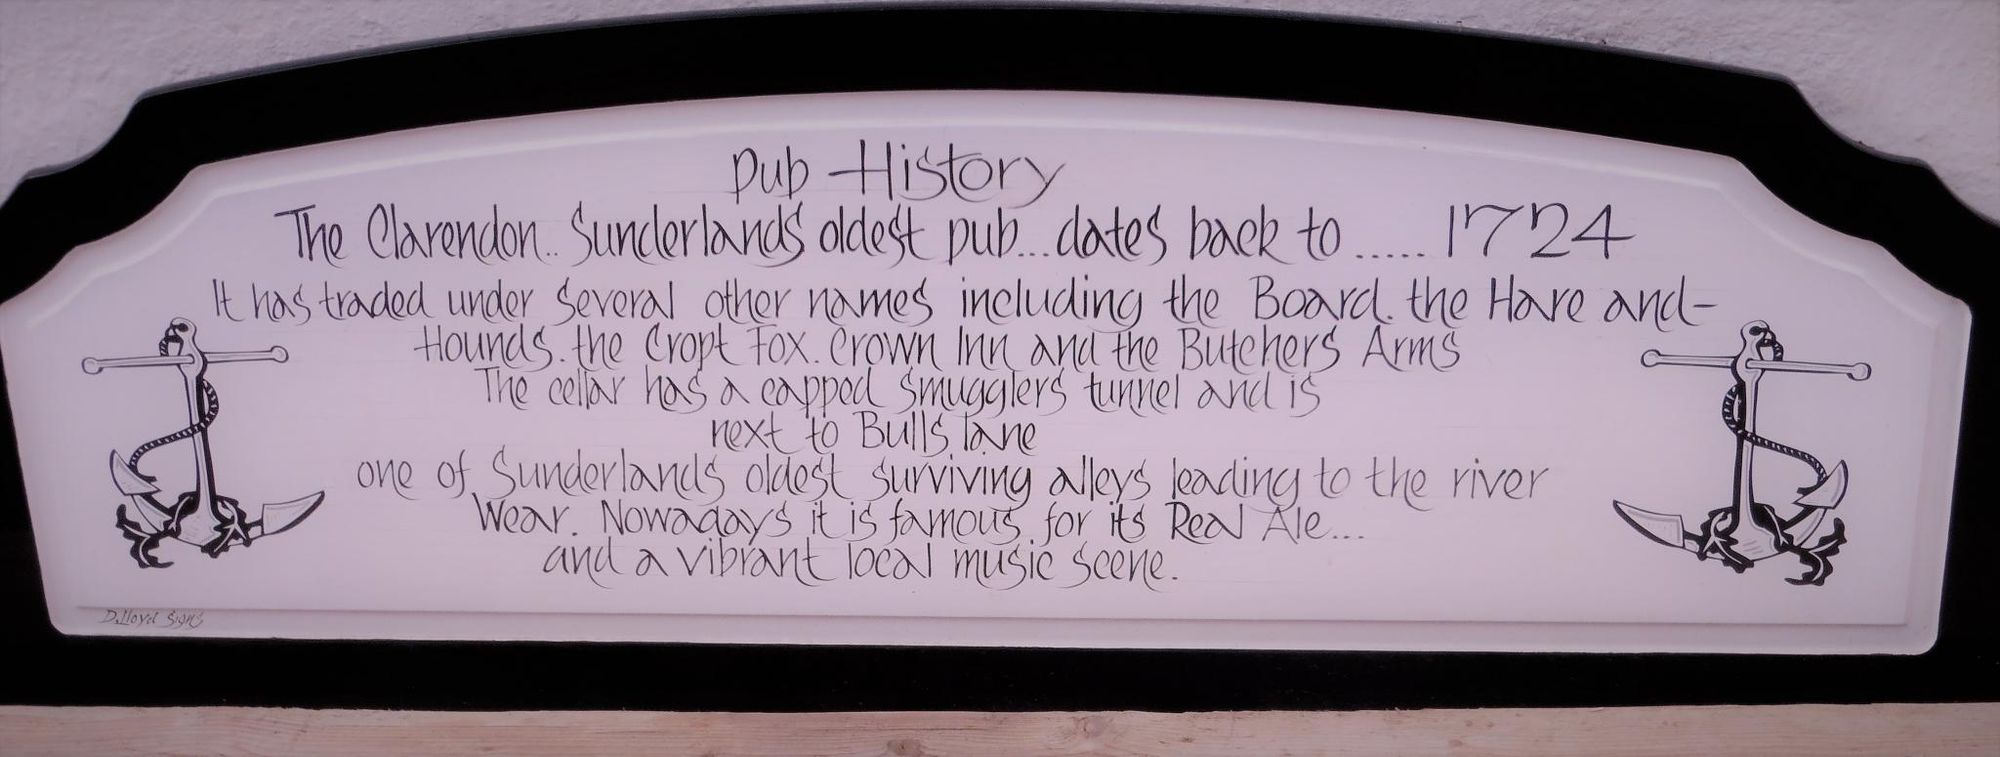 Pub History
The Clarendon.. Sunderlands oldest pub...dates back to ..... 1724
It has traded under several other names including the Board. the Hare and-
Hounds. the Cropt Fox. Crown Inn and the Butchers Arms
The cellar has a capped smugglers tunnel and is
next to Bulls lane
one of Sunderlands oldest surviving alleys leading to the river
Wear. Nowadays it is famous for its Real Ale...
and a vibrant local music scene.
D.Lloyd Signs